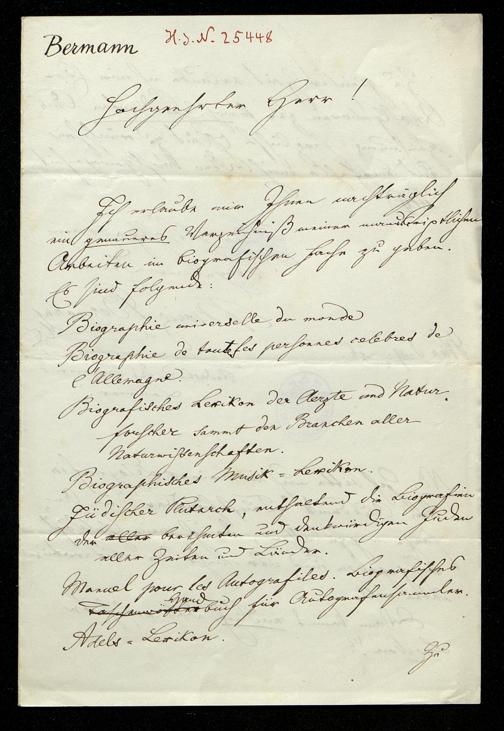 Bermann
H. I. N. 25448
Hochgeehrter Herr!
Ich erlaube mir Ihnen nachträglich
ein genaueres Verzeichniß meiner manuscriptlichen
Arbeiten im biografischen Fache zu geben.
Es sind folgende:
Biographie universelle du monde
Biographie de toutes les personnes celebres de
l'Allemagne.
Biografisches Lexikon der Aerzte und Natur-
forscher sammt den Branchen aller
Naturwissenschaften.
Biographisches Musik-Lexikon.
Jüdischer Plutarch, enthaltend die Biografien
der aller berühmten und denkwürdigen Juden
aller Zeiten und Länder.
Manuel pour les Autografiles. Biografisches
Handbuch für Autografensammler.
Adels-Lexikon.
Zu